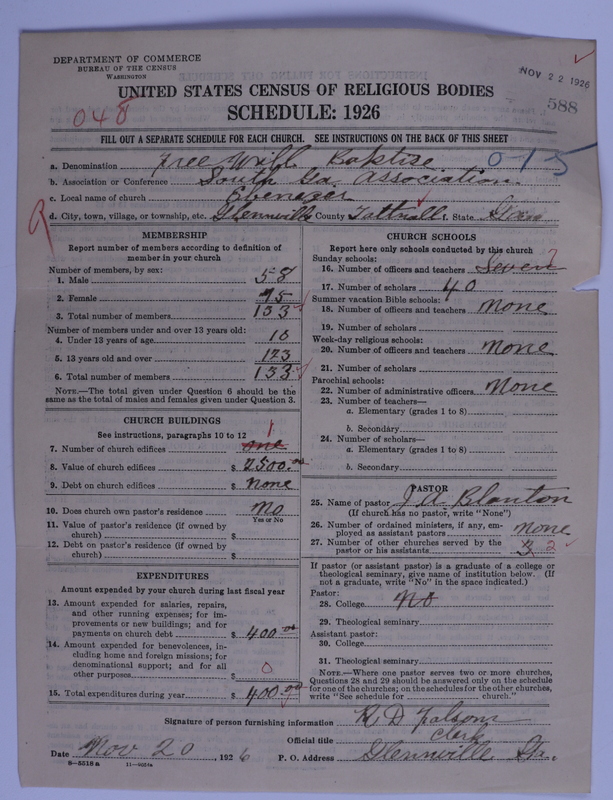 DEPARTMENT OF COMMERCE
BUREAU OF THE CENSUS
WASHINGTON
NOV 22 1926
588
UNITED STATES CENSUS OF RELIGIOUS BODIES
SCHEDULE: 1926
048
FILL OUT A SEPARATE SCHEDULE FOR EACH CHURCH. SEE INSTRUCTIONS ON THE BACK OF THIS SHEET
a. Denomination Free Will Baptise 0-15
b. Association or Conference South Ga Association.
c. Local name of church Ebenezer
d. City, town, village, or township, etc. Glennville County Tattnall State
MEMBERSHIP
Report number of members according to definition of
member in your church
Number of members, by sex:
1. Male 58
2. Female 75
3. Total number of members 133
Number of members under and over 13 years old:
4. Under 13 years of age 10
5. 13 years old and over 123
6. Total number of members 133
NOTE.—The total given under Question 6 should be
same as the total of males and females given under Question 3.
CHURCH BUILDINGS
See instructions, paragraphs 10 to 12
7. Number of church edifices one 1
8. Value of church edifices $ 2500.00
9. Debt on church edifices $ none
10. Does church own pastor's residence No
Yes or No
11. Value of pastor's residence (if owned by
church) $
12. Debt on pastor's residence (if owned by
church) $
EXPENDITURES
Amount expended by your church during last fiscal year
13. Amount expended for salaries, repairs,
and other running expenses; for im-
provements or new buildings; and for
payments on church debt $ 400.00
14. Amount expended for benevolences, in-
cluding home and foreign missions; for
denominational support; and for all
other purposes $ 0
15. Total expenditures during year $ 400.00
CHURCH SCHOOLS
Report here only schools conducted by this church
Sunday schools:
16. Number of officers and teachers Seven 7
17. Number of scholars 40
Summer vacation Bible schools:
18. Number of officers and teachers None
19. Number of scholars
Week-day religious schools:
20. Number of officers and teachers None
21. Number of scholars
Parochial schools:
22. Number of administrative officers None
23. Number of teachers—
a. Elementary (grades 1 to 8)
b. Secondary
24. Number of scholars—
a. Elementary (grades 1 to 8)
b. Secondary
PASTOR
25. Name of pastor J. A. Blanton
(If church has no pastor, write "None")
26. Number of ordained ministers, if any, em-
ployed as assistant pastors none
27. Number of other churches served by the
pastor or his assistants 3 2
If pastor (or assistant pastor) is a graduate of a college or
theological seminary, give name of institution below. (If
not a graduate, write "No" in the space indicated.)
Pastor:
28. College No
29. Theological seminary
Assistant pastor:
30. College
31. Theological seminary
NOTE.—Where one pastor serves two or more churches,
Questions 28 and 29 should be answered only on the schedule
for one of the churches; on the schedules for the other churches,
write "See schedule for church."
Signature of person furnishing information D Folsom
Official title Clerk
Date Nov 20, 1926 P. O. Address Glennville Ga.
8-5518a 11-9054a